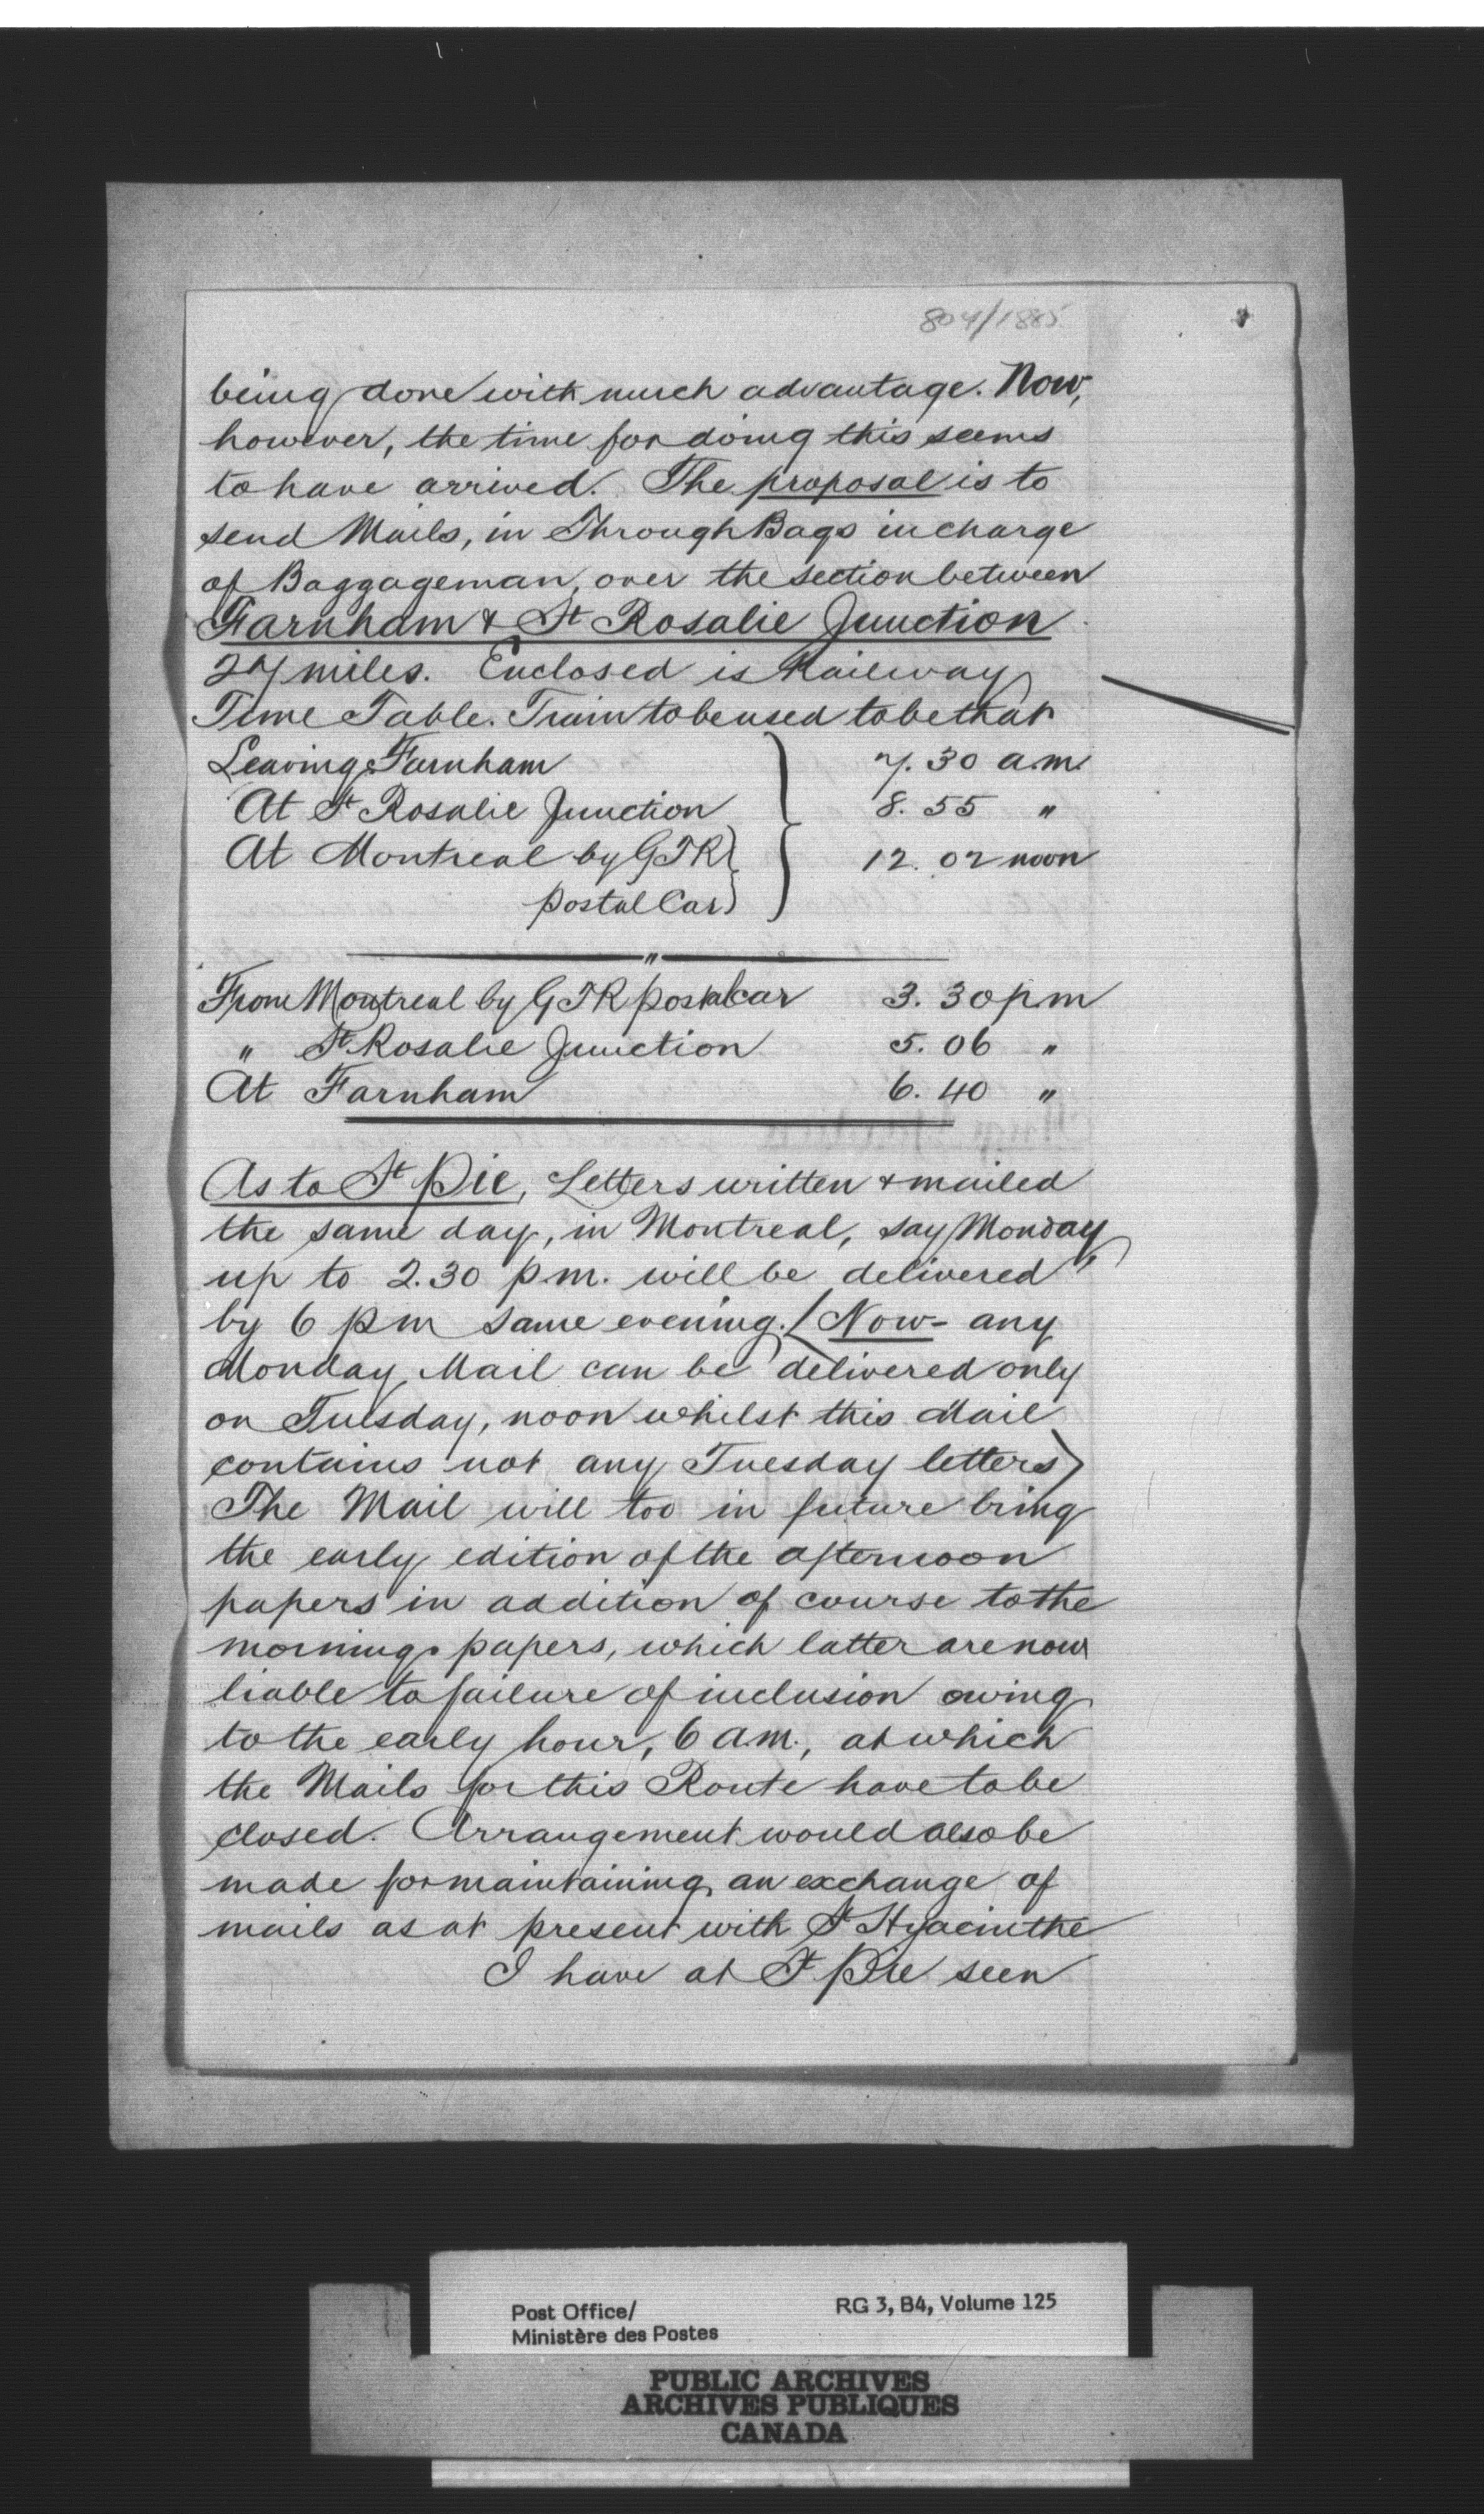 804/1885
being done with much advantage. Now,
however, the time for doing this seems
to have arrived. The proposal is to
send Mails, in Through Bags in charge
of Baggageman, over the section between
Farnham & St Rosalie Junction
27 miles. Enclosed is Railway
Time Table. Train to be used to be that
Leaving Farnham 7.30 a.m.
At St Rosalie Junction 8.55 "
At Montreal by GTR 12.02 noon
postal Car
"
From Montreal by GTR postal car 3.30 pm
" St Rosalie Junction 5.06 "
At Farnham 6.40 "
As to St Pie, Letters written & mailed
the same day, in Montreal, say Monday,
up to 2.30 pm. will be delivered
by 6 pm same evening. (Now - any
Monday Mail can be delivered only
on Tuesday, noon whilst this Mail
contains not any Tuesday letters)
The Mail will too in future bring
the early edition of the afternoon
papers in addition of course to the
morning papers, which latter are now
liable to failure of inclusion owing
to the early hour, 6 a.m., at which
the Mails for this Route have to be
closed. Arrangement would also be
made for maintaining an exchange of
mails as at present with St Hyacinthe
I have at St Pie seen
Post Office/ RG 3, B4, Volume 125
Ministère des Postes
PUBLIC ARCHIVES
ARCHIVES PUBLIQUES
CANADA